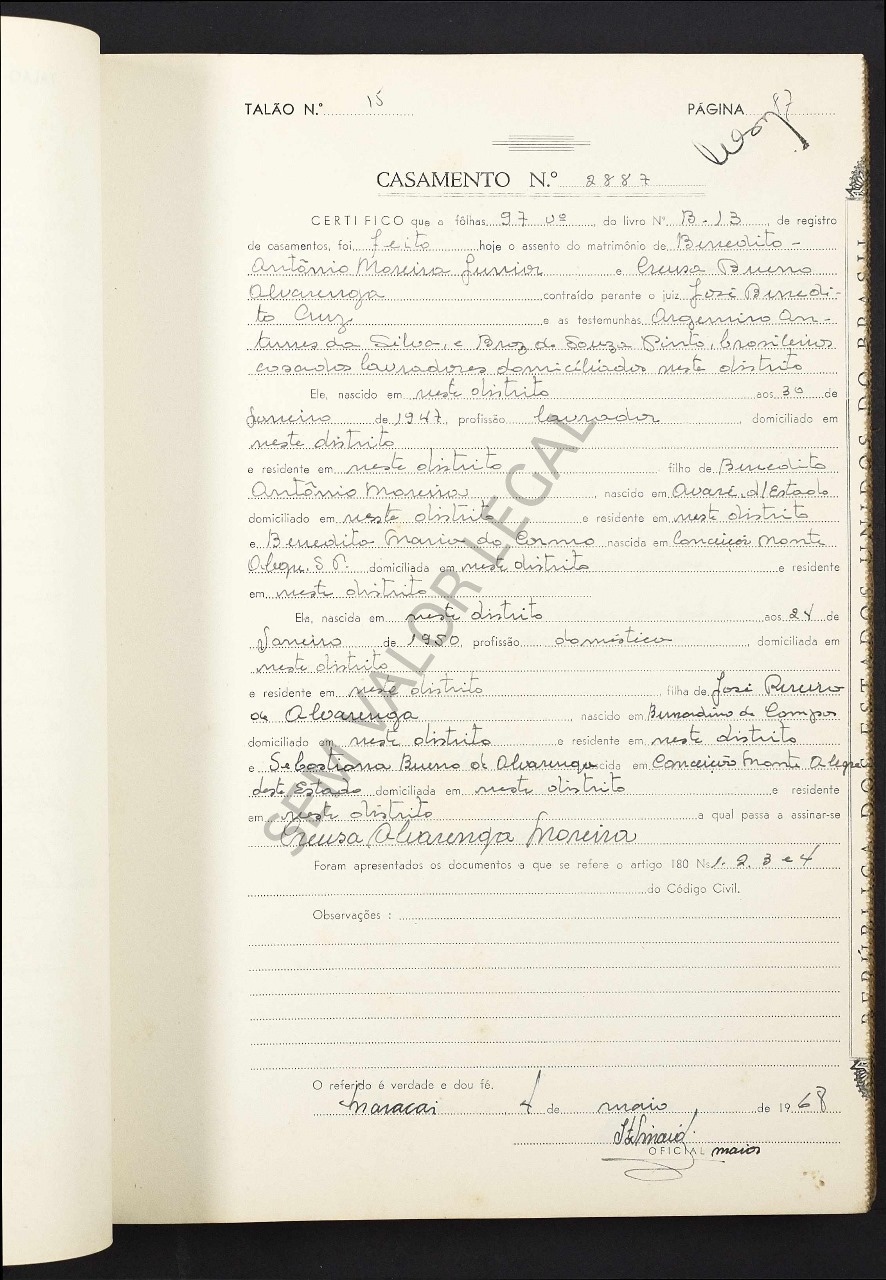 TALÃO N.º 15 PÁGINA 87
CASAMENTO N.º 2887
CERTIFICO que a fôlhas 97 vº do livro Nº B-13, de registro
de casamentos, foi feito hoje o assento do matrimônio de Benedito
Antônio Moreira Junior e Creusa Bueno
Alvarenga contraído perante o juiz José Benedi-
to Cruz e as testemunhas Argemiro An-
tunes da Silva, e Braz de Souza Pinto, brasileiros
casados lavradores domiciliados neste distrito
Ele, nascido em neste distrito aos 30 de
Janeiro de 1947, profissão lavrador, domiciliado em
neste distrito
e residente em neste distrito filho de Benedito
Antônio Moreira, nascido em Avaré, d/Estado
domiciliado em neste distrito e residente em neste distrito
e Benedita Maria do Carmo nascida em Conceição Monte
Alegre. S.P. domiciliada em neste distrito e residente
em neste distrito
Ela, nascida em neste distrito aos 24 de
Janeiro de 1950 profissão doméstica, domiciliada em
neste distrito
e residente em neste distrito, filha de José Pereira
de Alvarenga, nascido em Bernardino de Campos
domiciliado em neste distrito e residente em neste distrito
e Sebastiana Bueno de Alvarenga cida em Conceição Monte Alegre
deste Estado domiciliada em neste distrito e residente
em neste distrito a qual passa a assinar-se
Creusa Alvarenga Moreira
Foram apresentados os documentos a que se refere o artigo 180 Ns 1. 2. 3 e 4
do Código Civil.
Observações :
O referido é verdade e dou fé.
Maracai 4 de maio de 1968
OFICIAL maior
SEM VALOR LEGAL
REPÚBLICA DOS ESTADOS UNIDOS DO BRASIL